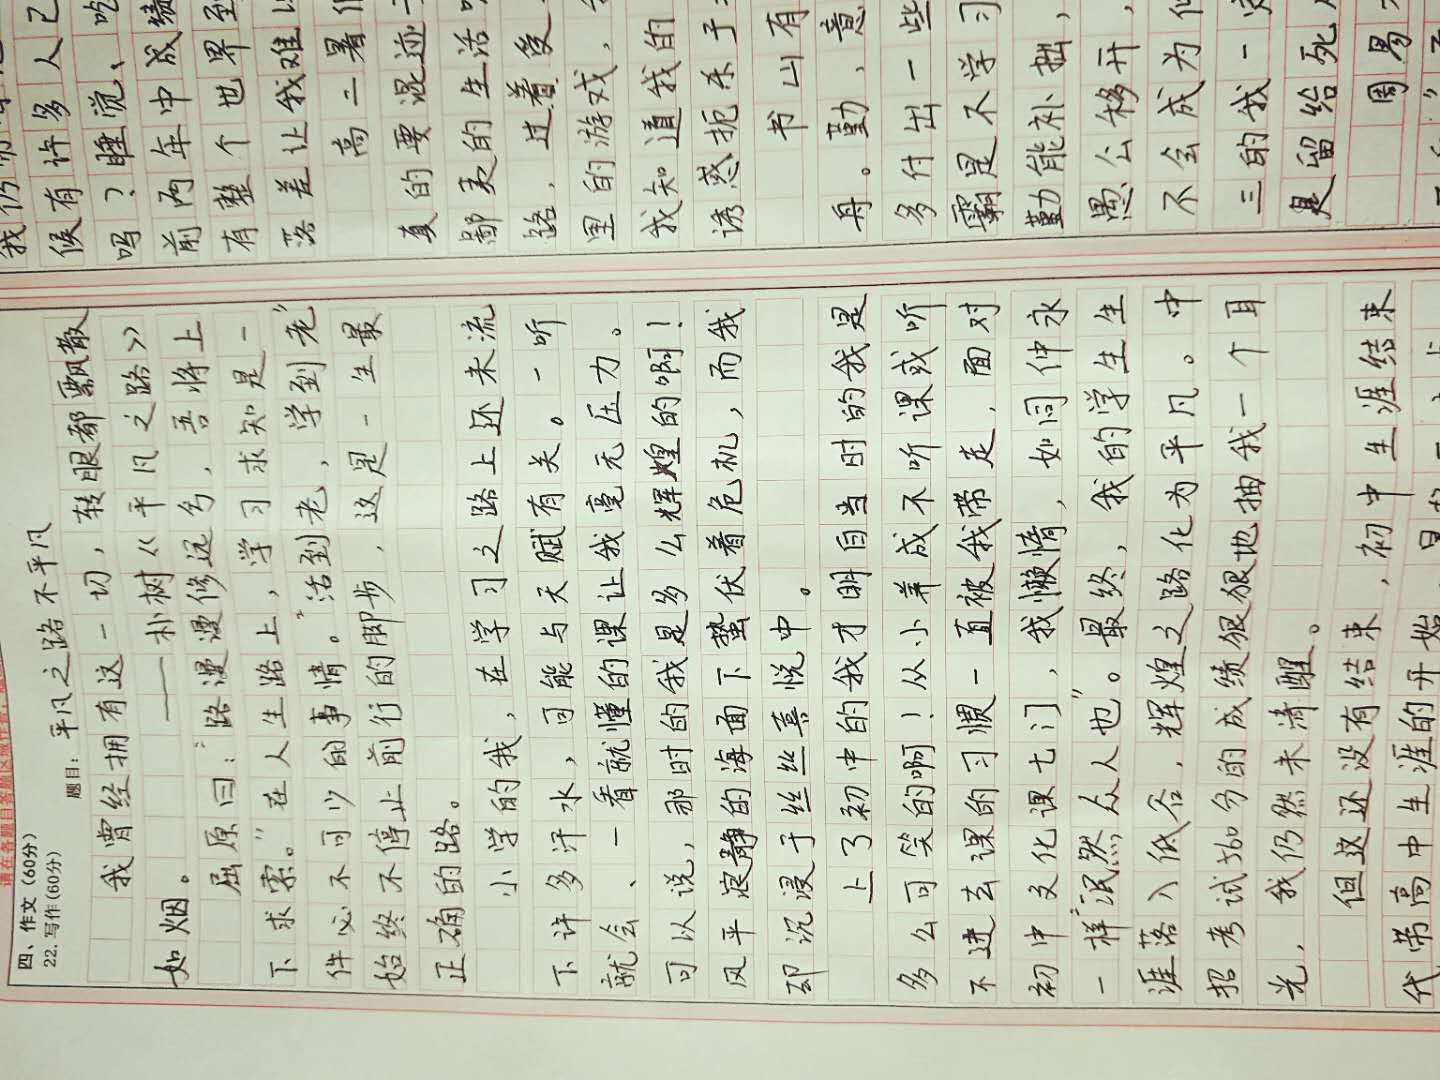 四、作文(60分)
22. 写作(60分)
题目: 平凡之路不平凡
我曾经拥有这一切，转眼都飘散
如烟。 ——朴树《平凡之路》
屈原曰:“路漫漫修远兮，吾将上
下求索。”在人生路上，学习求知是一
件必不可少的事情。“活到老，学到老”
始终不停止前行的脚步，这是一生最
正确的路。
小学的我，在学习之路上还未流
下许多汗水，可能与天赋有关。一听
就会、一看就懂的课让我毫无压力。
可以说，那时的我是多么辉煌的啊！
风平浪静的海面下蛰伏着危机，而我
却沉浸于丝丝喜悦中。
上了初中的我才明白当时的我是
多么可笑的啊！从小养成不听课或听
不进去课的习惯一直被我带走，面对
初中文化课七门，我懒惰，如同仲永
一样“泯然众人也”。最终，我的学生生
涯落入低谷，辉煌之路化为平凡。中
招考试560分的成绩狠狠地抽我一个耳
光，我仍然未清醒。
但这还没有结束，初中生涯结束
代带高中生涯的开始
候有许多人
吗？睡觉、吃
前两年中成绩
有整个世界
落差让我难以
高二暑
真的要混迹
鄙夷的生活
路，过着受
里的游戏，
我知道我的
诱惑扼杀于
书山有
舟。勤，意
多付出一些
霸是不学习
勤能补拙，
愚公移开，
不会成为
三的我一定
是留给死
周易